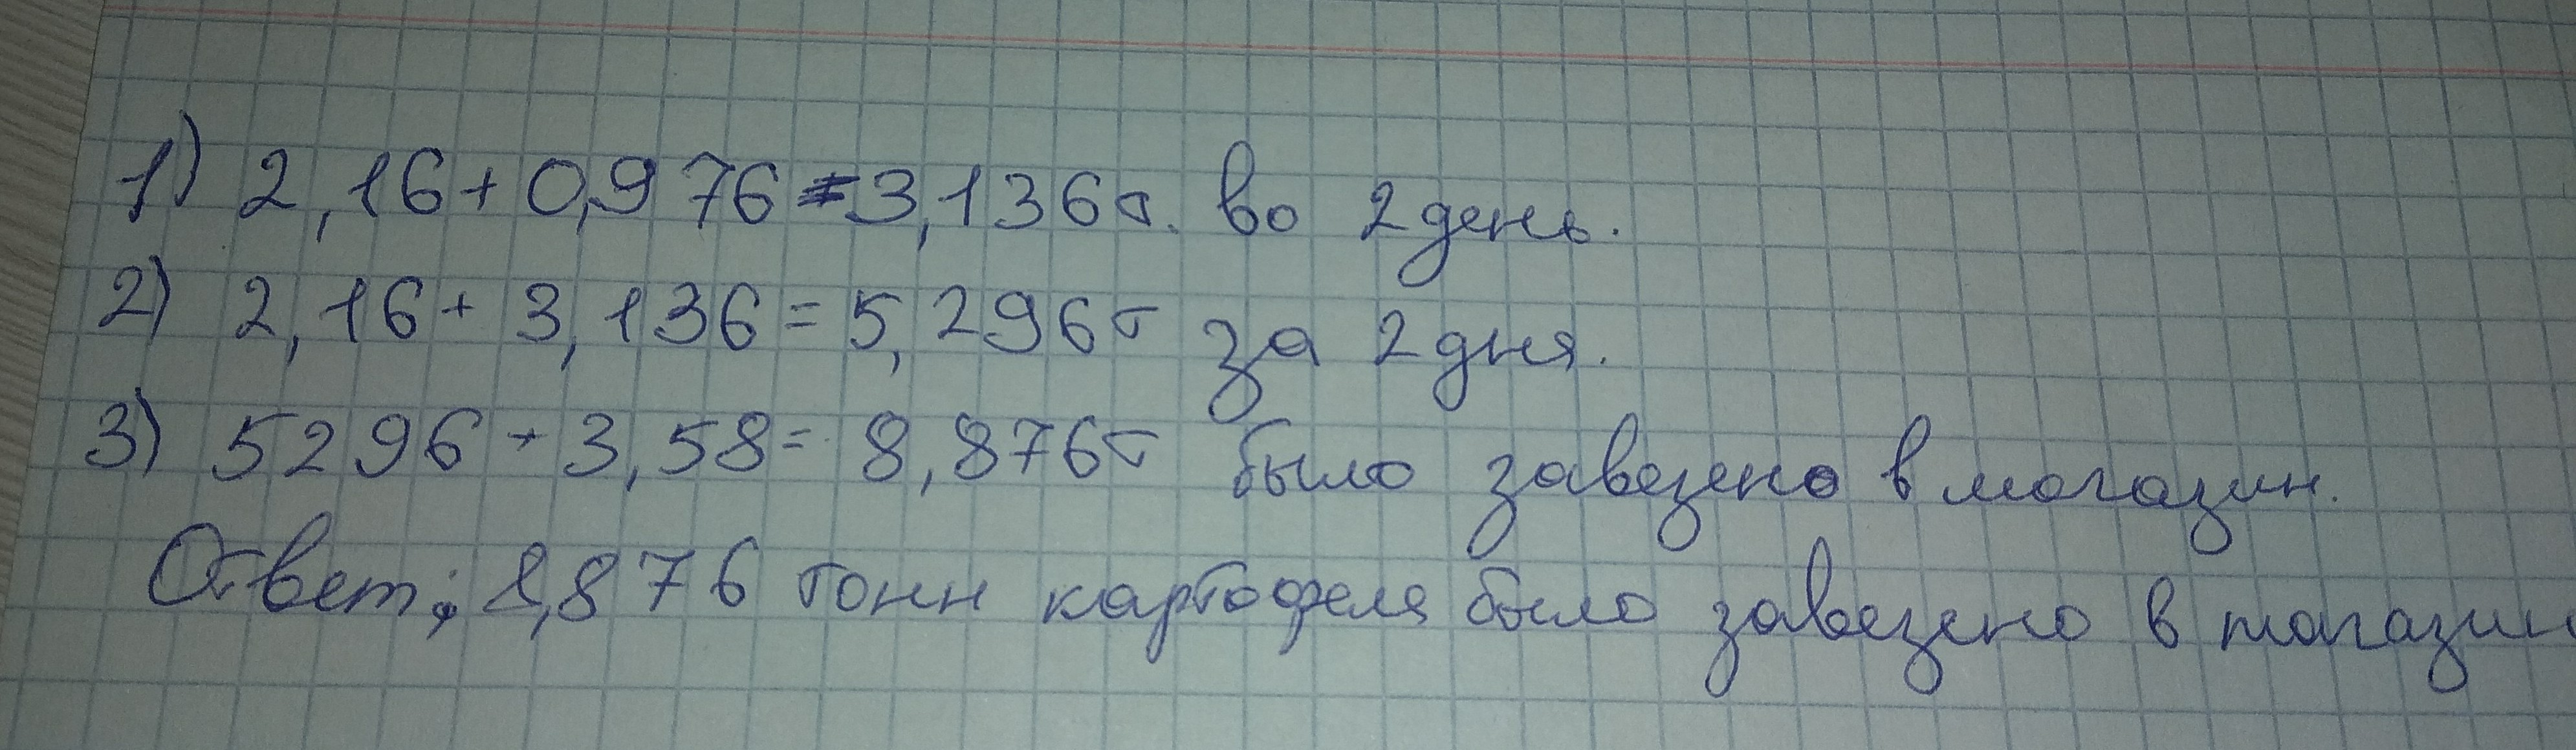 1) 2,16+0,976=3,136т. во 2 день.
2) 2,16+3,136=5,296т за 2 дня.
3) 5296+3,58=8,876т было завезено в магазин.
Ответ: 8,876 тонн картофеля было завезено в магазин